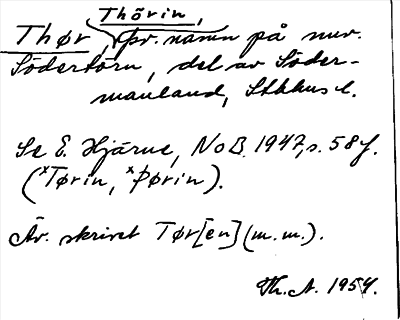 Thörin,
Thør, fsv. namn på nuv.
Södertörn, del av Söder-
manland, Sthlms l.
Se E. Hjärne, NoB. 1947, s. 58 f.
(*Tørin, *Þørin).
Äv. skrivet Tør[en] (m.m.).
Th. A. 1954.